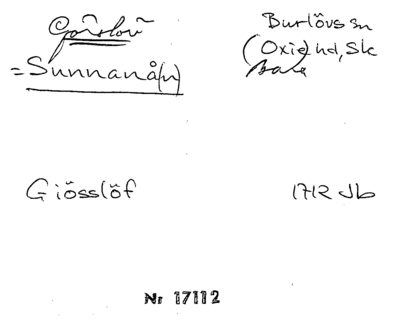 Görslöv
Burlövs sn
= Sunnanå(n)
(Oxie hd, Sk
Bara
Giösslöf
1712 Jb
Nr 17112